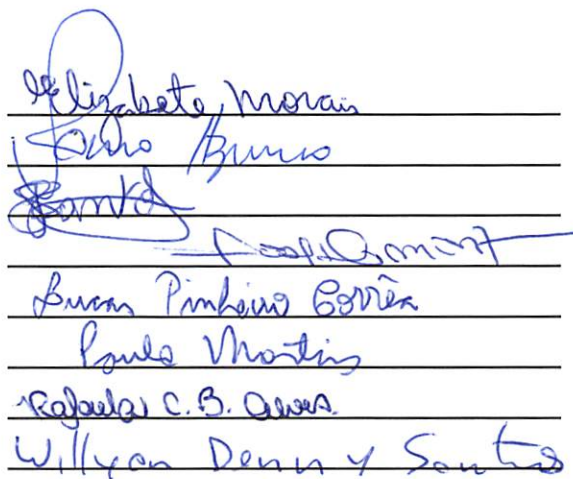 Elizabete Morais
Bruno
Lucas Pinheiro Corrêa
Paulo Martins
Rafaela C.B. Alves.
Willyan Denny Santos